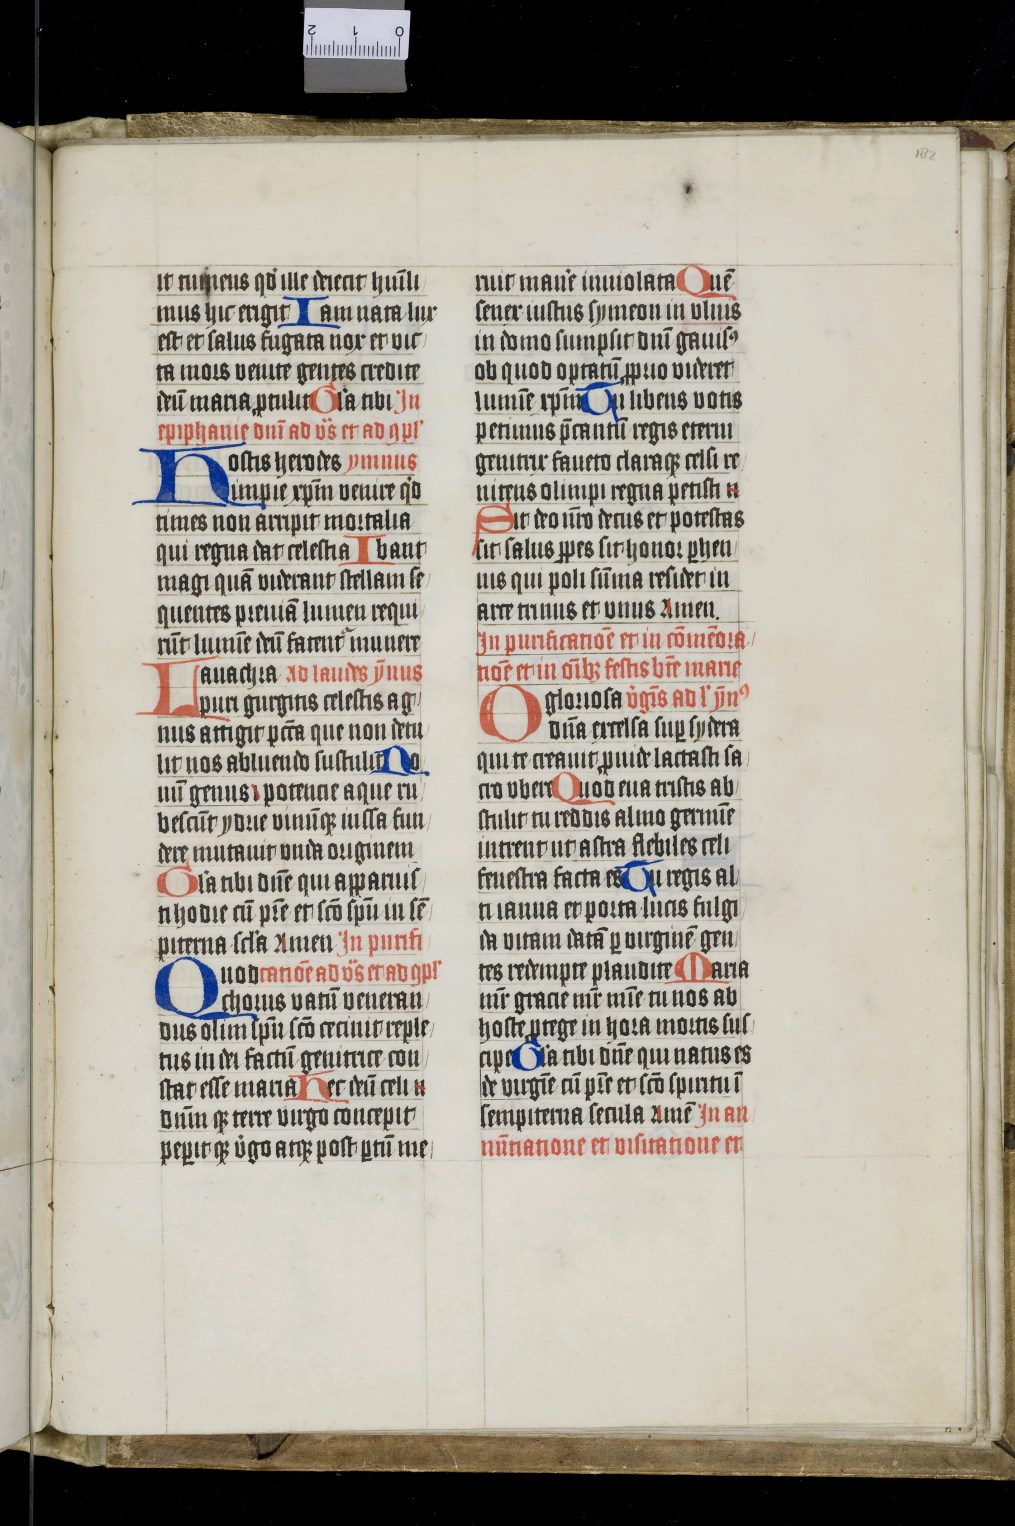 182
it tumens qd̄ ille deiecit hūili
mus hic erigit Iam nata lux
est et salus fugata nox et vic
ta mors venite gentes credite
deū maria ꝓtulit Gl̄a tibi In
epiphanie dnī ad vs̄ et ad ꝯpl'
Hostis herodes ymnus
impie xp̄m venire qd̄
times non arripit mortalia
qui regna dat celestia Ibant
magi quā viderant stellam se
quentes preuiā lumen requi
rūt lumīe deū fatent᷑ munere
Lauachra Ad laudes ȳnus
puri gurgitis celestis ag
nus attigit pctā que non detu
lit nos abluendo sustulit No
uū genus potencie aque ru
bescūt ydrie vinūqꝫ iussa fun
dere mutauit vnda originem
Gl̄a tibi dnē qui apparuis
ti hodie cū pr̄e et scō sp̄u in sē
piterna scl̄a Amen In purifi
Quod catiōe ad vs̄ et ad ꝯpl'
chorus vatū veneran
dus olim sp̄u scō cecinit reple
tus in dei factū genitrice con
stat esse maria Hec deū celi
dnm̄ qꝫ terre virgo concepit
peꝑit qꝫ v̄go atqꝫ post ꝑtū me
ruit man̄e inuiolata Quē
senex iustus symeon in vlnis
in domo sumpsit dnū gauisꝰ
ob quod optatū ꝓprio videret
lumīe xp̄m Tu libens votis
petimus p̄cantū regis eterni
genitrix faueto claraqꝫ celsi re
nitens olimpi regna petisti
Sit deo nr̄o decus et potestas
sit salus ꝑpes sit honor ꝑhen
nis qui poli sūma residet in
arce trinus et vnus Amen.
In purificatiōe et in cōmēora
tiōe et in oīb; festis btē marie
O gloriosa v̄gīs ad l' ȳnꝰ
dn̄a excelsa suꝑ sydera
qui te creauit ꝓuide lactasti sa
cro vbere Quod eua tristis ab
stulit tu reddis almo germīe
intrent ut astra flebiles celi
fenestra facta es Tu regis al
ti ianua et porta lucis fulgi
da vitam datā ꝑ virginē gen
tes redempte plaudite Maria
mr̄ gracie mr̄ mīe tu nos ab
hoste ꝓtege in hora mortis sus
cipe Gl̄a tibi dnē qui natus es
de virgīe cū pr̄e et scō spiritu ī
sempiterna secula Amē In an
nūtiatione et visitatione et